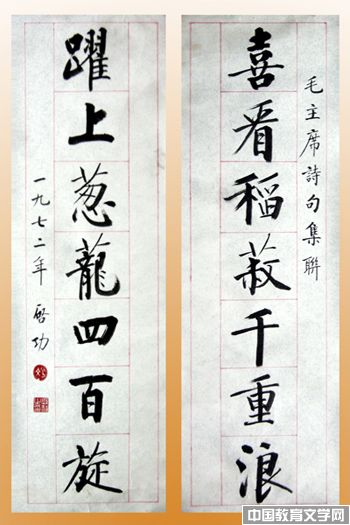 毛主席詩句集聯
喜看稻菽千重浪
躍上葱蘢四百旋
一九七二年 啓功
中国教育文学网